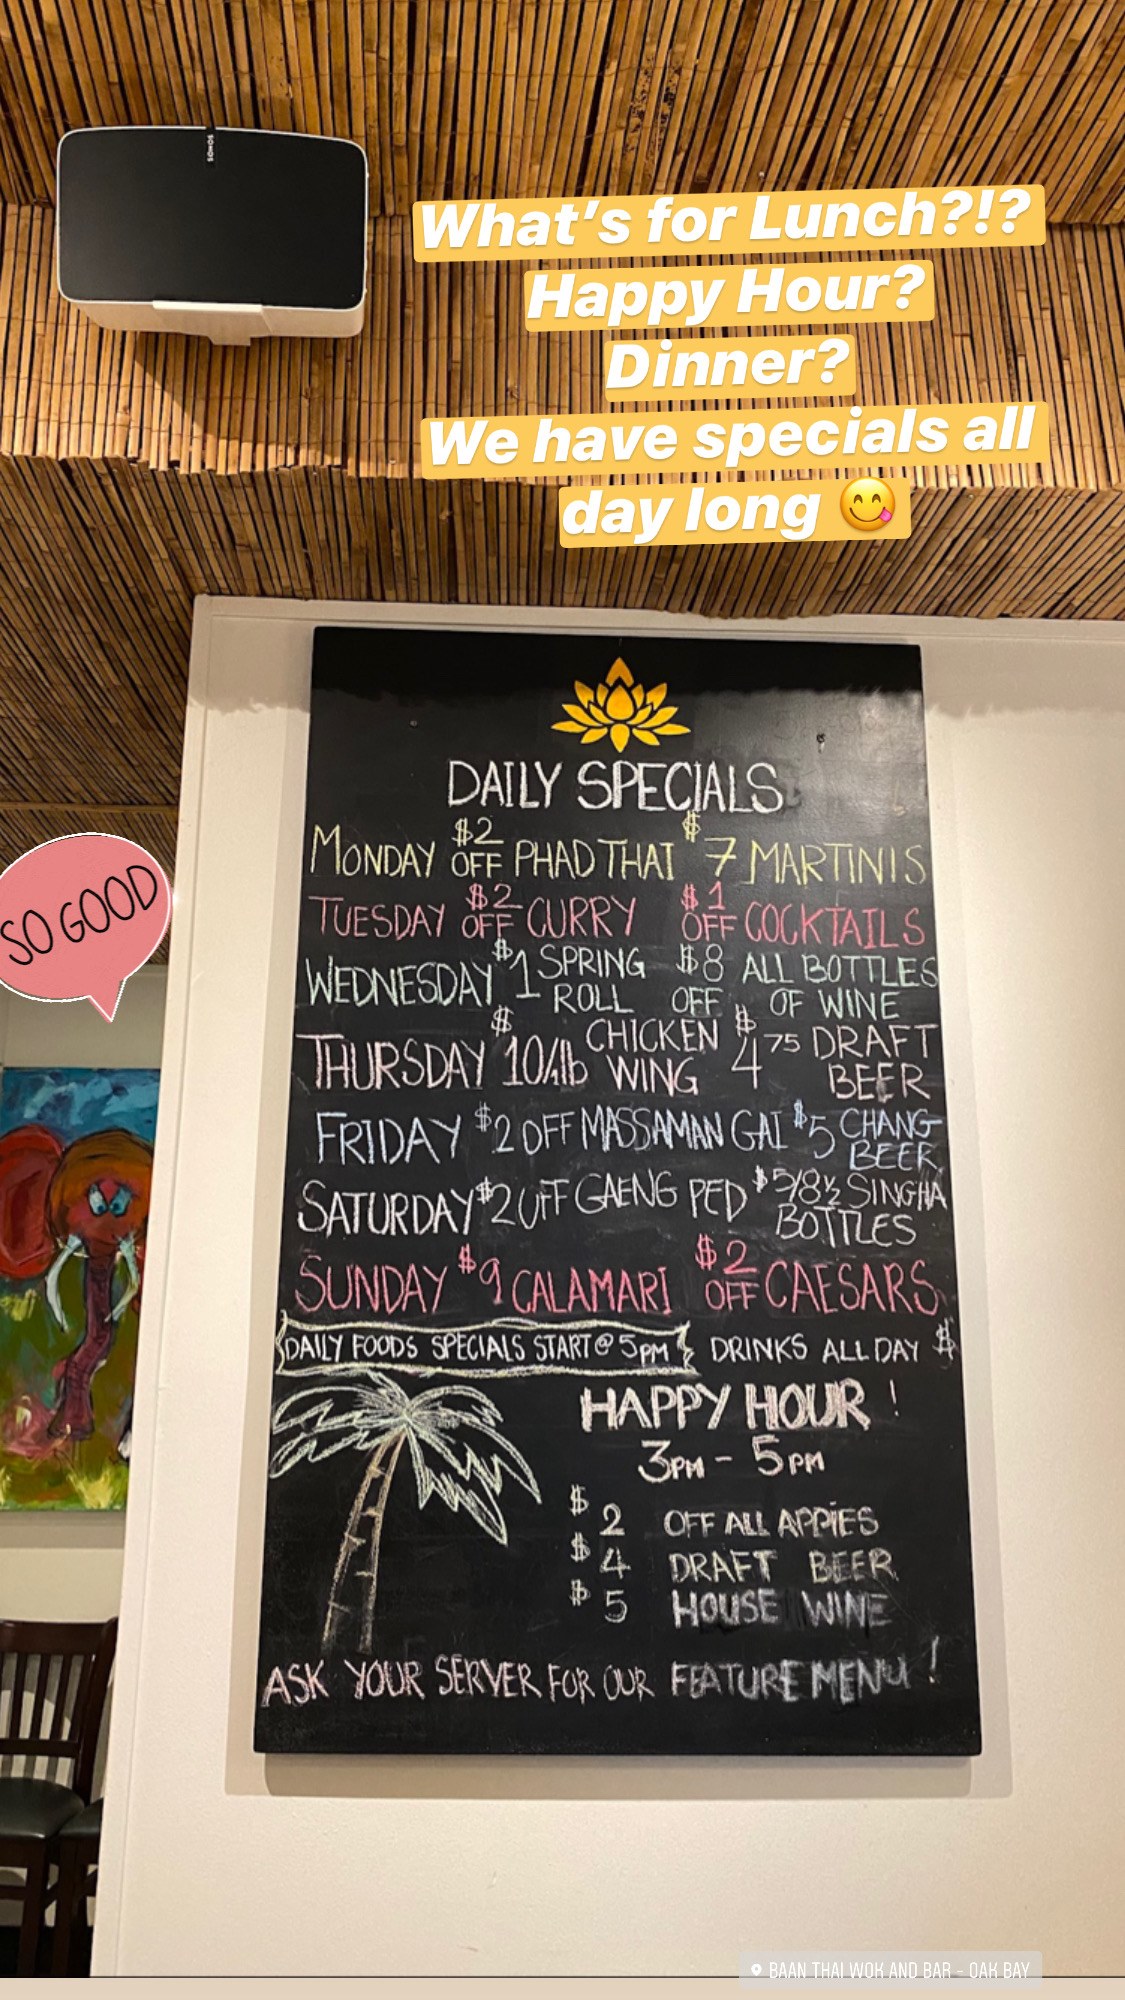 SONOS
What's for Lunch?!?
Happy Hour?
Dinner?
We have specials all
day long 😋
SO GOOD
DAILY SPECIALS
MONDAY $2 OFF PHAD THAI $7 MARTINIS
TUESDAY $2 OFF CURRY $1 OFF COCKTAILS
WEDNESDAY $1 SPRING ROLL $8 OFF ALL BOTTLES OF WINE
THURSDAY $10/lb CHICKEN WING $4.75 DRAFT BEER
FRIDAY $2 OFF MASSAMAN GAI $5 CHANG BEER
SATURDAY $2 OFF GAENG PED $5/8½ SINGHA BOTTLES
SUNDAY $9 CALAMARI $2 OFF CAESARS
DAILY FOODS SPECIALS START @ 5PM DRINKS ALL DAY $
HAPPY HOUR!
3PM - 5PM
$2 OFF ALL APPIES
$4 DRAFT BEER
$5 HOUSE WINE
ASK YOUR SERVER FOR OUR FEATURE MENU!
BAAN THAI WOK AND BAR - OAK BAY